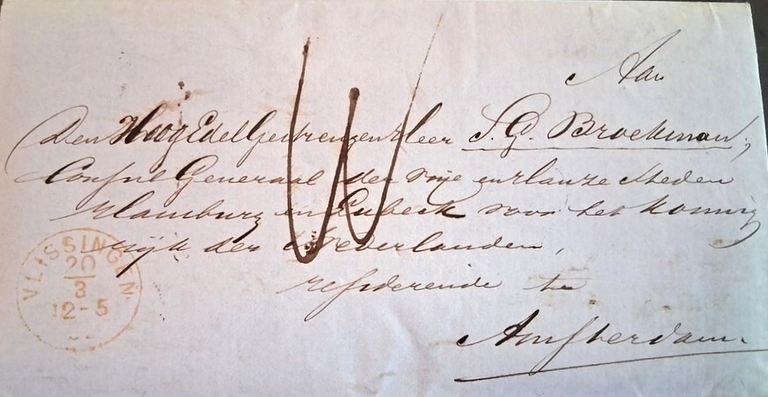 Aan
Den HoogEdelGestrengen Heer S. G. Broekman,
Consul Generaal der vrije en Hanze Steden
Hamburg en Lubeck voor het Koning
rijk der Nederlanden,
resideerende te
Amsterdam.
VLISSINGEN
20
3
12-5